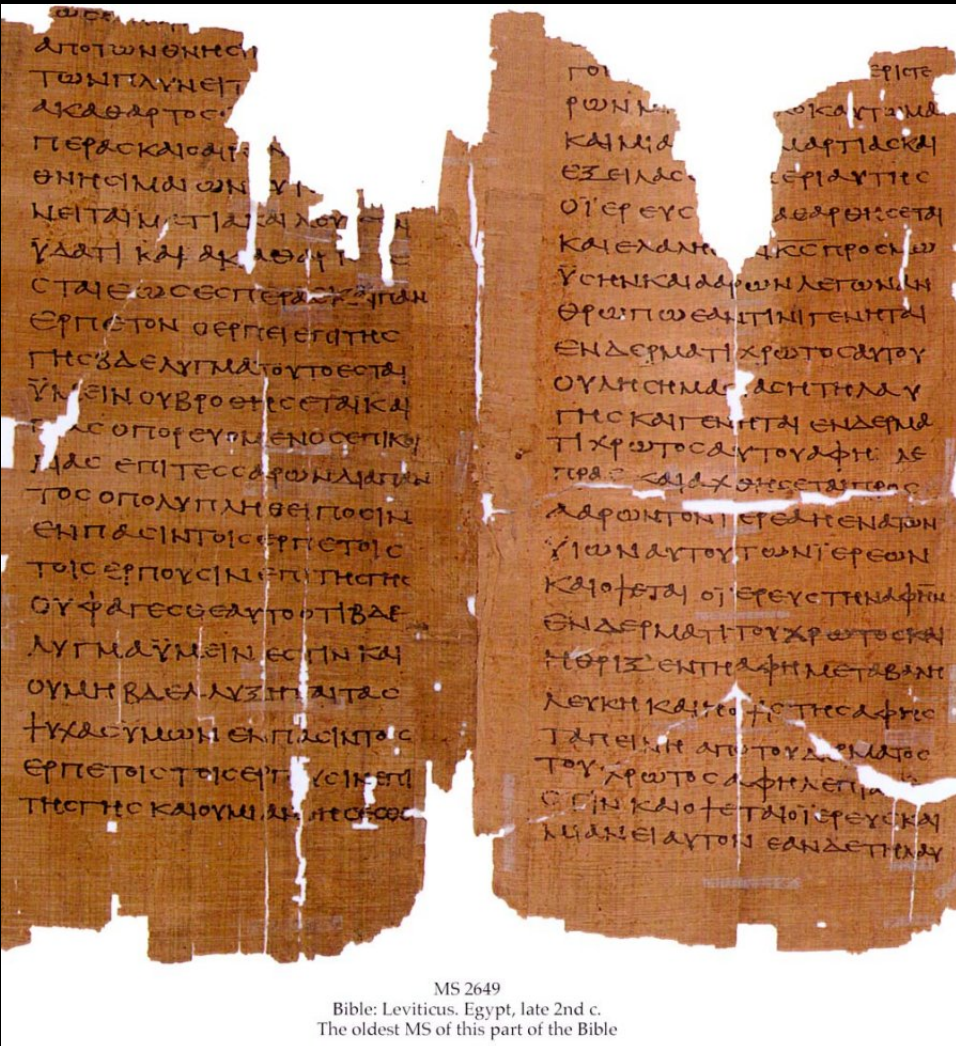 ΑΠΟΤΩΝΘΝΗϹΙ
ΤΩΝΠΛΥΝΕΙΤ
ΑΚΑΘΑΡΤΟϹ
ΠΕΡΑϹΚΑΙΟΑΙΡ Ν
ΘΝΗϹΙΜΑΙΩΝ ΥΝ
ΝΕΙΤΑΙΜ ΤΙΑΚΑΙΛΟΥ Ε Ν
ΫΔΑΤΙ ΚΑΙ ΑΚΑΘΑΡΤ Ε
ϹΤΑΙΕΩϹΕϹΠΕΡΑϹΚΑΙΠΑΝ
ΕΡΠΕΤΟΝ ΟΕΡΠΕΙΕΠΙΤΗϹ
ΓΗϹΒΔΕΛΥΓΜΑΤΟΥΤΟΕϹΤΑΙ
ΫΜΕΙΝΟΥΒΡΟΘΗϹΕΤΑΙΚΑΙ
ΑϹ ΟΠΟΡΕΥΟΜΕΝΟϹΕΠΙΚΟΙ
ΛΙΑϹ ΕΠΙΤΕϹϹΑΡΩΝΔΙΑΠΑΝ
ΤΟϹ ΟΠΟΛΥΠΛΗΘΕΙΠΟϹΙΝ
ΕΝΠΑϹΙΝΤΟΙϹΕΡΠΕΤΟΙϹ
ΤΟΙϹ ΕΡΠΟΥϹΙΝ ΕΠΙΤΗϹΓΗϹ
ΟΥΦΑΓΕϹΘΕΑΥΤΟΟΤΙΒΔΕ
ΛΥΓΜΑΫΜΕΙΝ ΕϹΤΙΝ ΚΑΙ
ΟΥΜΗ ΒΔΕΛΛΥΞΗΤΑΙΤΑϹ
ΨΥΧΑϹΥΜΩΝ ΕΝΠΑϹΙΝΤΟΙϹ
ΕΡΠΕΤΟΙϹΤΟΙϹΕΡΠ ΥϹΙΝΕΠΙ
ΤΗϹΓΗϹ ΚΑΙΟΥΜΙΑΝ ΗϹΕϹΘΕ
ΓΟΙ ΕΡΙϹΤΕ
ΡΩΝΝ ΟΙΚΑΥΤΩΜΑ
ΚΑΙΜΙΑ ΜΑΡΤΙΑϹΚΑΙ
ΕΞΕΙΛΑϹ ΕΡΙΑΥΤΗϹ
ΟΪΕΡΕΥϹ ΑΘΑΡΘΗϹΕΤΑΙ
ΚΑΙΕΛΑΛΗ ΚϹ ΠΡΟϹΜΩ
ΫϹΗΝΚΑΙΑΑΡΩΝΛΕΓΩΝΑΝ
ΘΡΩΠΩΕΑΝΤΙΝΙΓΕΝΗΤΑΙ
ΕΝΔΕΡΜΑΤΙΧΡΩΤΟϹΑΥΤΟΥ
ΟΥΛΗϹΗΜΑϹ ΑϹΗΤΗΛΑΥ
ΓΗϹ ΚΑΙΓΕΝΗΤΑΙ ΕΝΔΕΡΜΑ
ΤΙΧΡΩΤΟϹΑΥΤΟΥΑΦΗ ΛΕ
ΠΡΑϹ ΚΑΙΑΧΘΗϹΕΤΑΙΠΡΟϹ
ΑΑΡΩΝΤΟΝΙΕΡΕΑΗΕΝΑΤΩΝ
ΫΙΩΝΑΥΤΟΥΤΩΝΪΕΡΕΩΝ
ΚΑΙΟΨΕΤΑΙ ΟΪΕΡΕΥϹΤΗΝΑΦΗΝ
ΕΝΔΕΡΜΑΤΙΤΟΥΧΡΩΤΟϹΚΑΙ
ΗΘΡΙΞ ΕΝΤΗΑΦΗΜΕΤΑΒΑΛΗ
ΛΕΥΚΗ ΚΑΙΗΟΨΙϹΤΗϹΑΦΗϹ
ΤΑΠΕΙΝΗ ΑΠΟΤΟΥΔΕΡΜΑΤΟϹ
ΤΟΥ ΧΡΩΤΟϹΑΦΗΛΕΠΡΑ
ϹΤΙΝ ΚΑΙΟΨΕΤΑΙΟΪΕΡΕΥϹΚΑΙ
ΜΙΑΝΕΙΑΥΤΟΝ ΕΑΝΔΕΤΗΛΑΥ
MS 2649
Bible: Leviticus. Egypt, late 2nd c.
The oldest MS of this part of the Bible